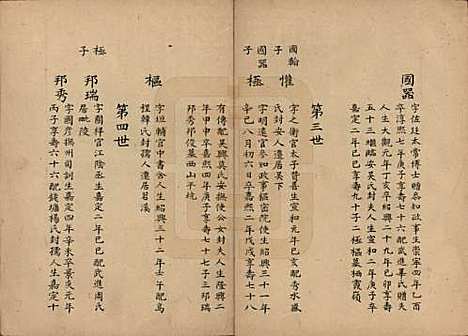 國器
字佐廷太常博士贈參知政事生崇寧四年乙酉
卒淳熙七年庚子享壽七十六配武進華氏贈夫
人生大觀元年丁亥卒紹興二十九年己卯享壽
五十三繼臨安吳氏封夫人生宣和二年庚子卒
嘉定二年己巳享壽九十子二極樞墓棲霞嶺
第三世
國翰子
惟
字之衛官太子贊善生宣和元年己亥配秀水臧
氏封安人遷居吳下
國器子
極
字明遠官參知政事樞密院使生紹興三十一年
辛巳八月初六日卒嘉熙二年戊戌享壽七十八
有傳配吳興莫氏安撫使公女封夫人生隆興二
年甲申卒嘉熙四年庚子享壽七十七子三邦瑞
邦秀邦俊墓西山平坑
樞
字垣輔官中書舍人生紹興三十二年壬午配烏
程韓氏封孺人遷居苕溪
第四世
極子
邦瑞
字爾祥官江陰丞生嘉定二年己巳配武進周氏
居毗陵
邦秀
字國彥撫州司訓生嘉定四年辛未卒景炎元年
丙子享壽六十六配錢塘楊氏封孺人生嘉定十